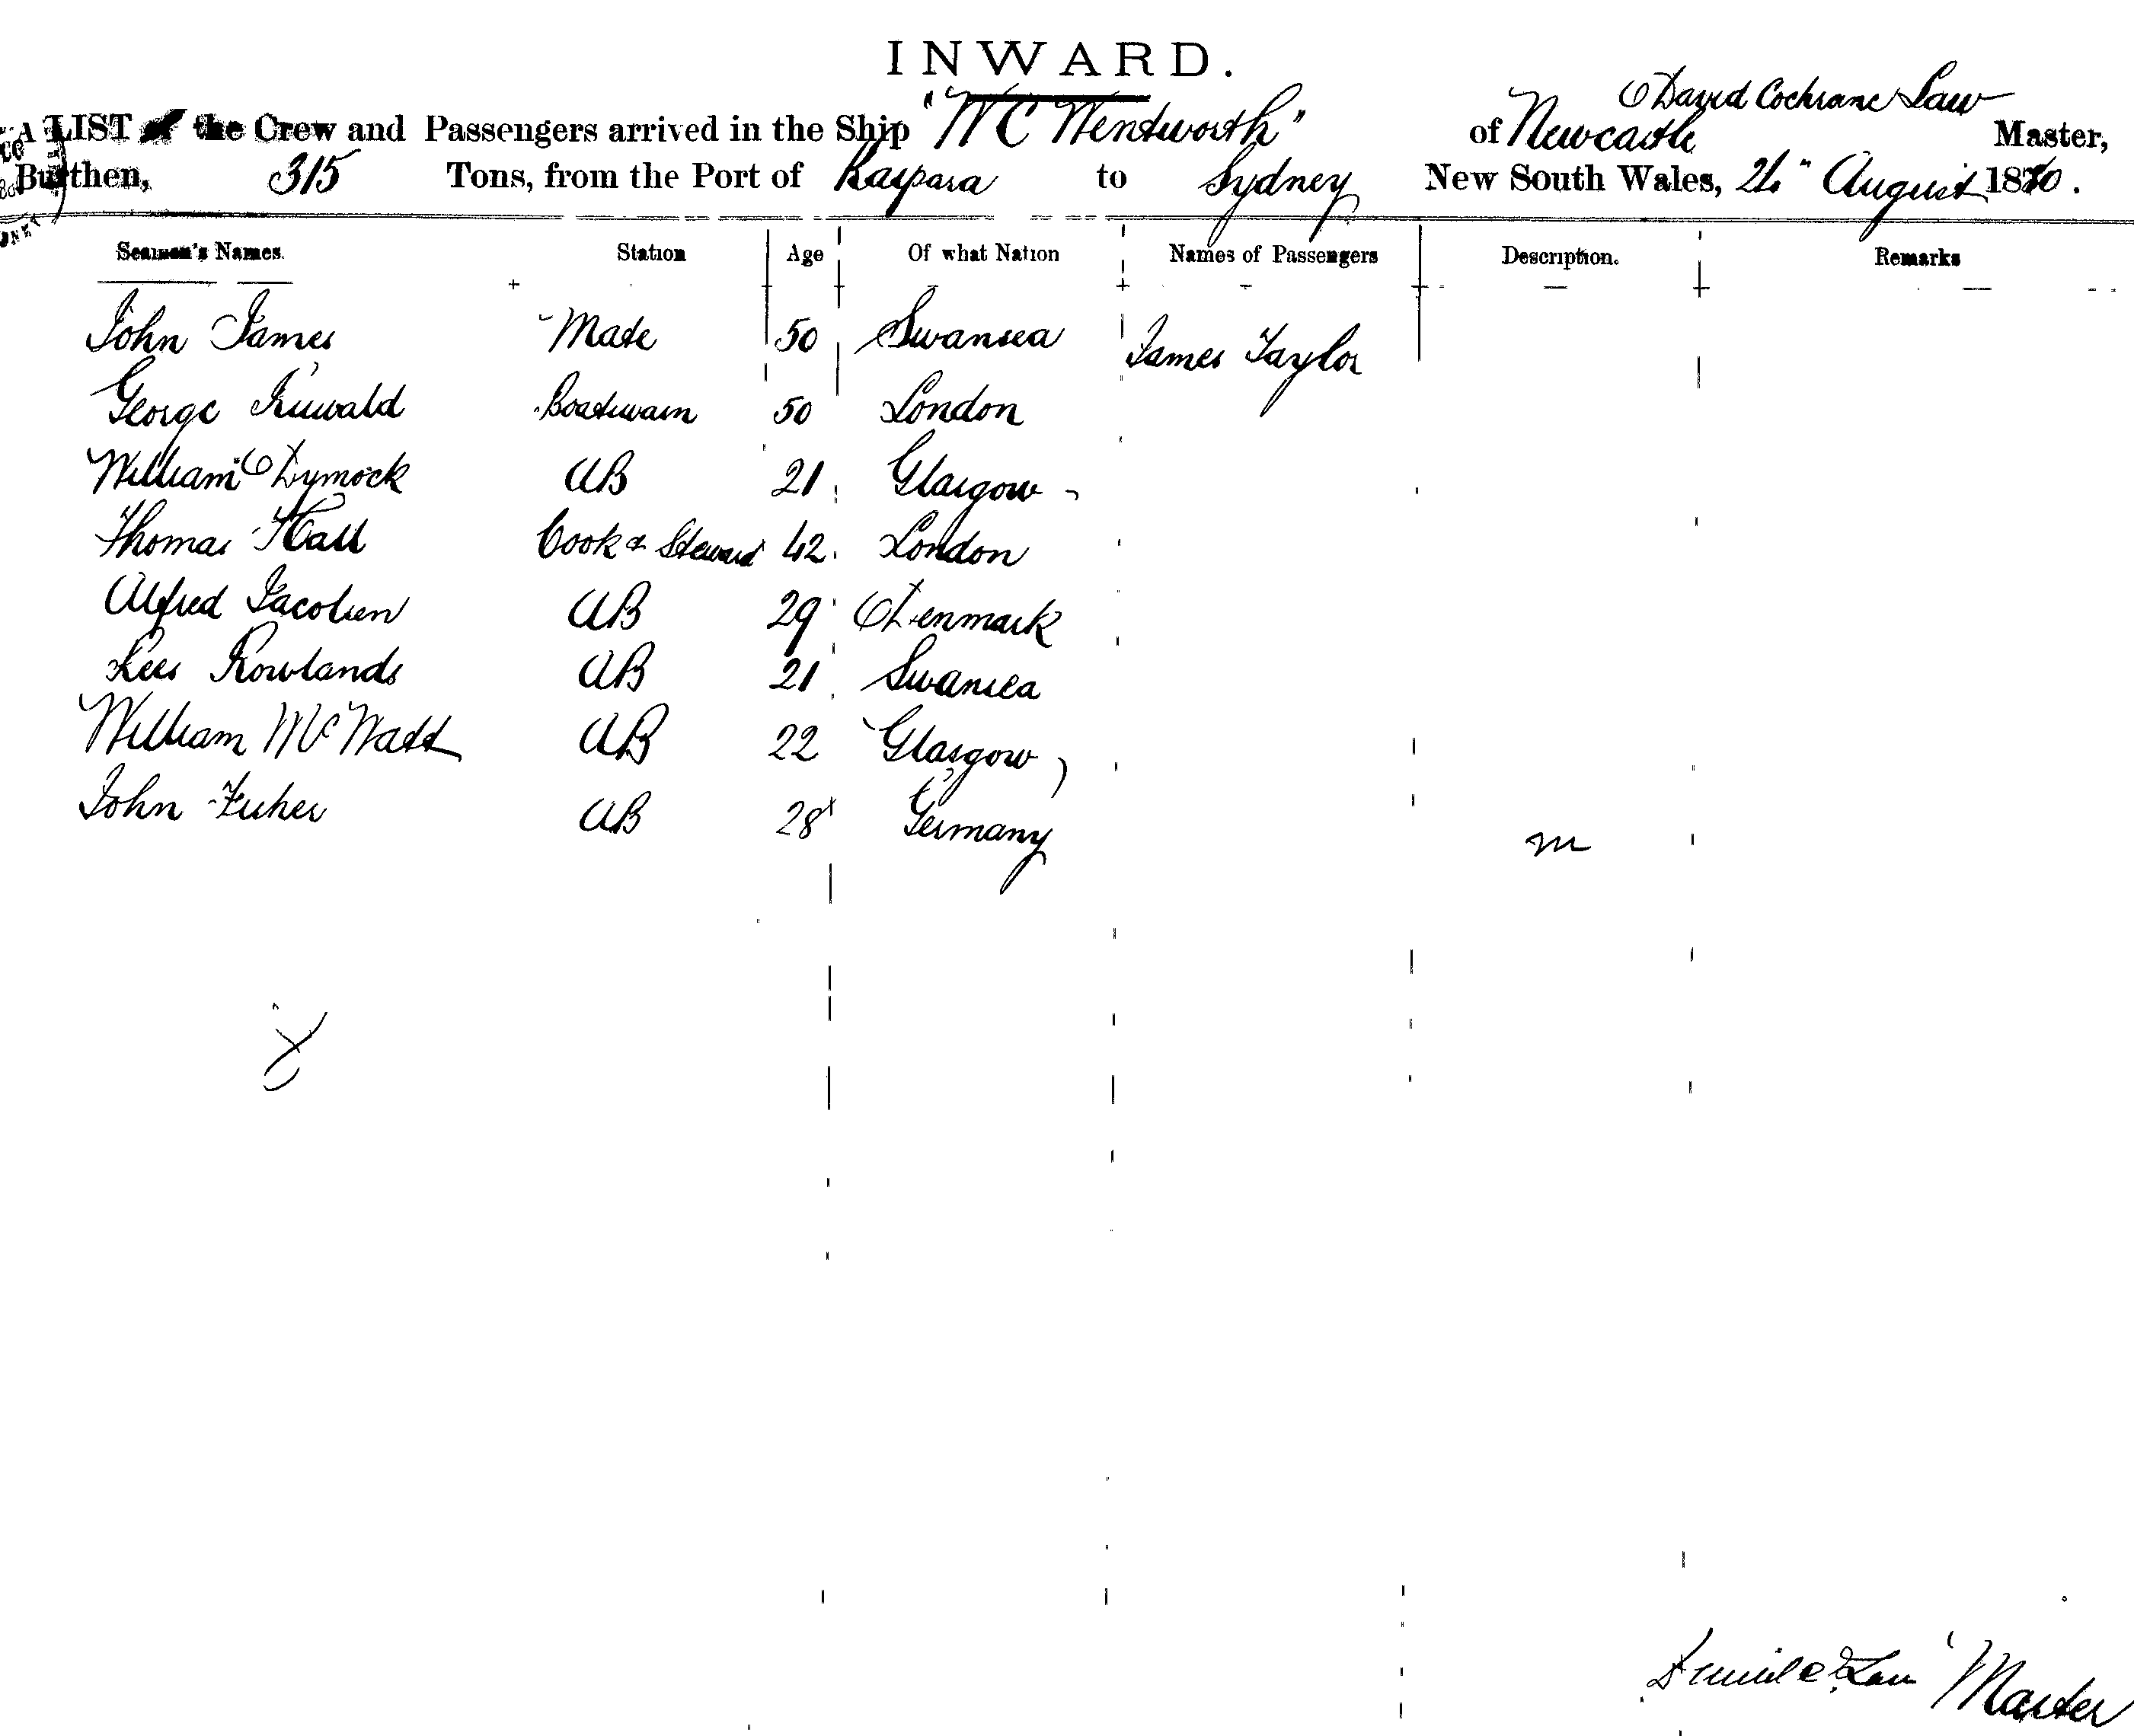 INWARD.
David Cochrane Law
A LIST of the Crew and Passengers arrived in the Ship "W C Wentworth" of Newcastle Master,
Burthen, 315 Tons, from the Port of Kaipara to Sydney New South Wales, August 1880.
Seamen's Names. Station Age Of what Nation Names of Passengers Description. Remarks
John James Mate 50 Swansea James Taylor
George Boatswain 50 London
William Dymock AB 21 Glasgow
Thomas Hall Cook & Steward 42 London
Alfred Jacobsen AB 29 Denmark
Rees Rowlands AB 21 Swansea
William McWatt AB 22 Glasgow
John Fisher AB 28 Germany
Law Master